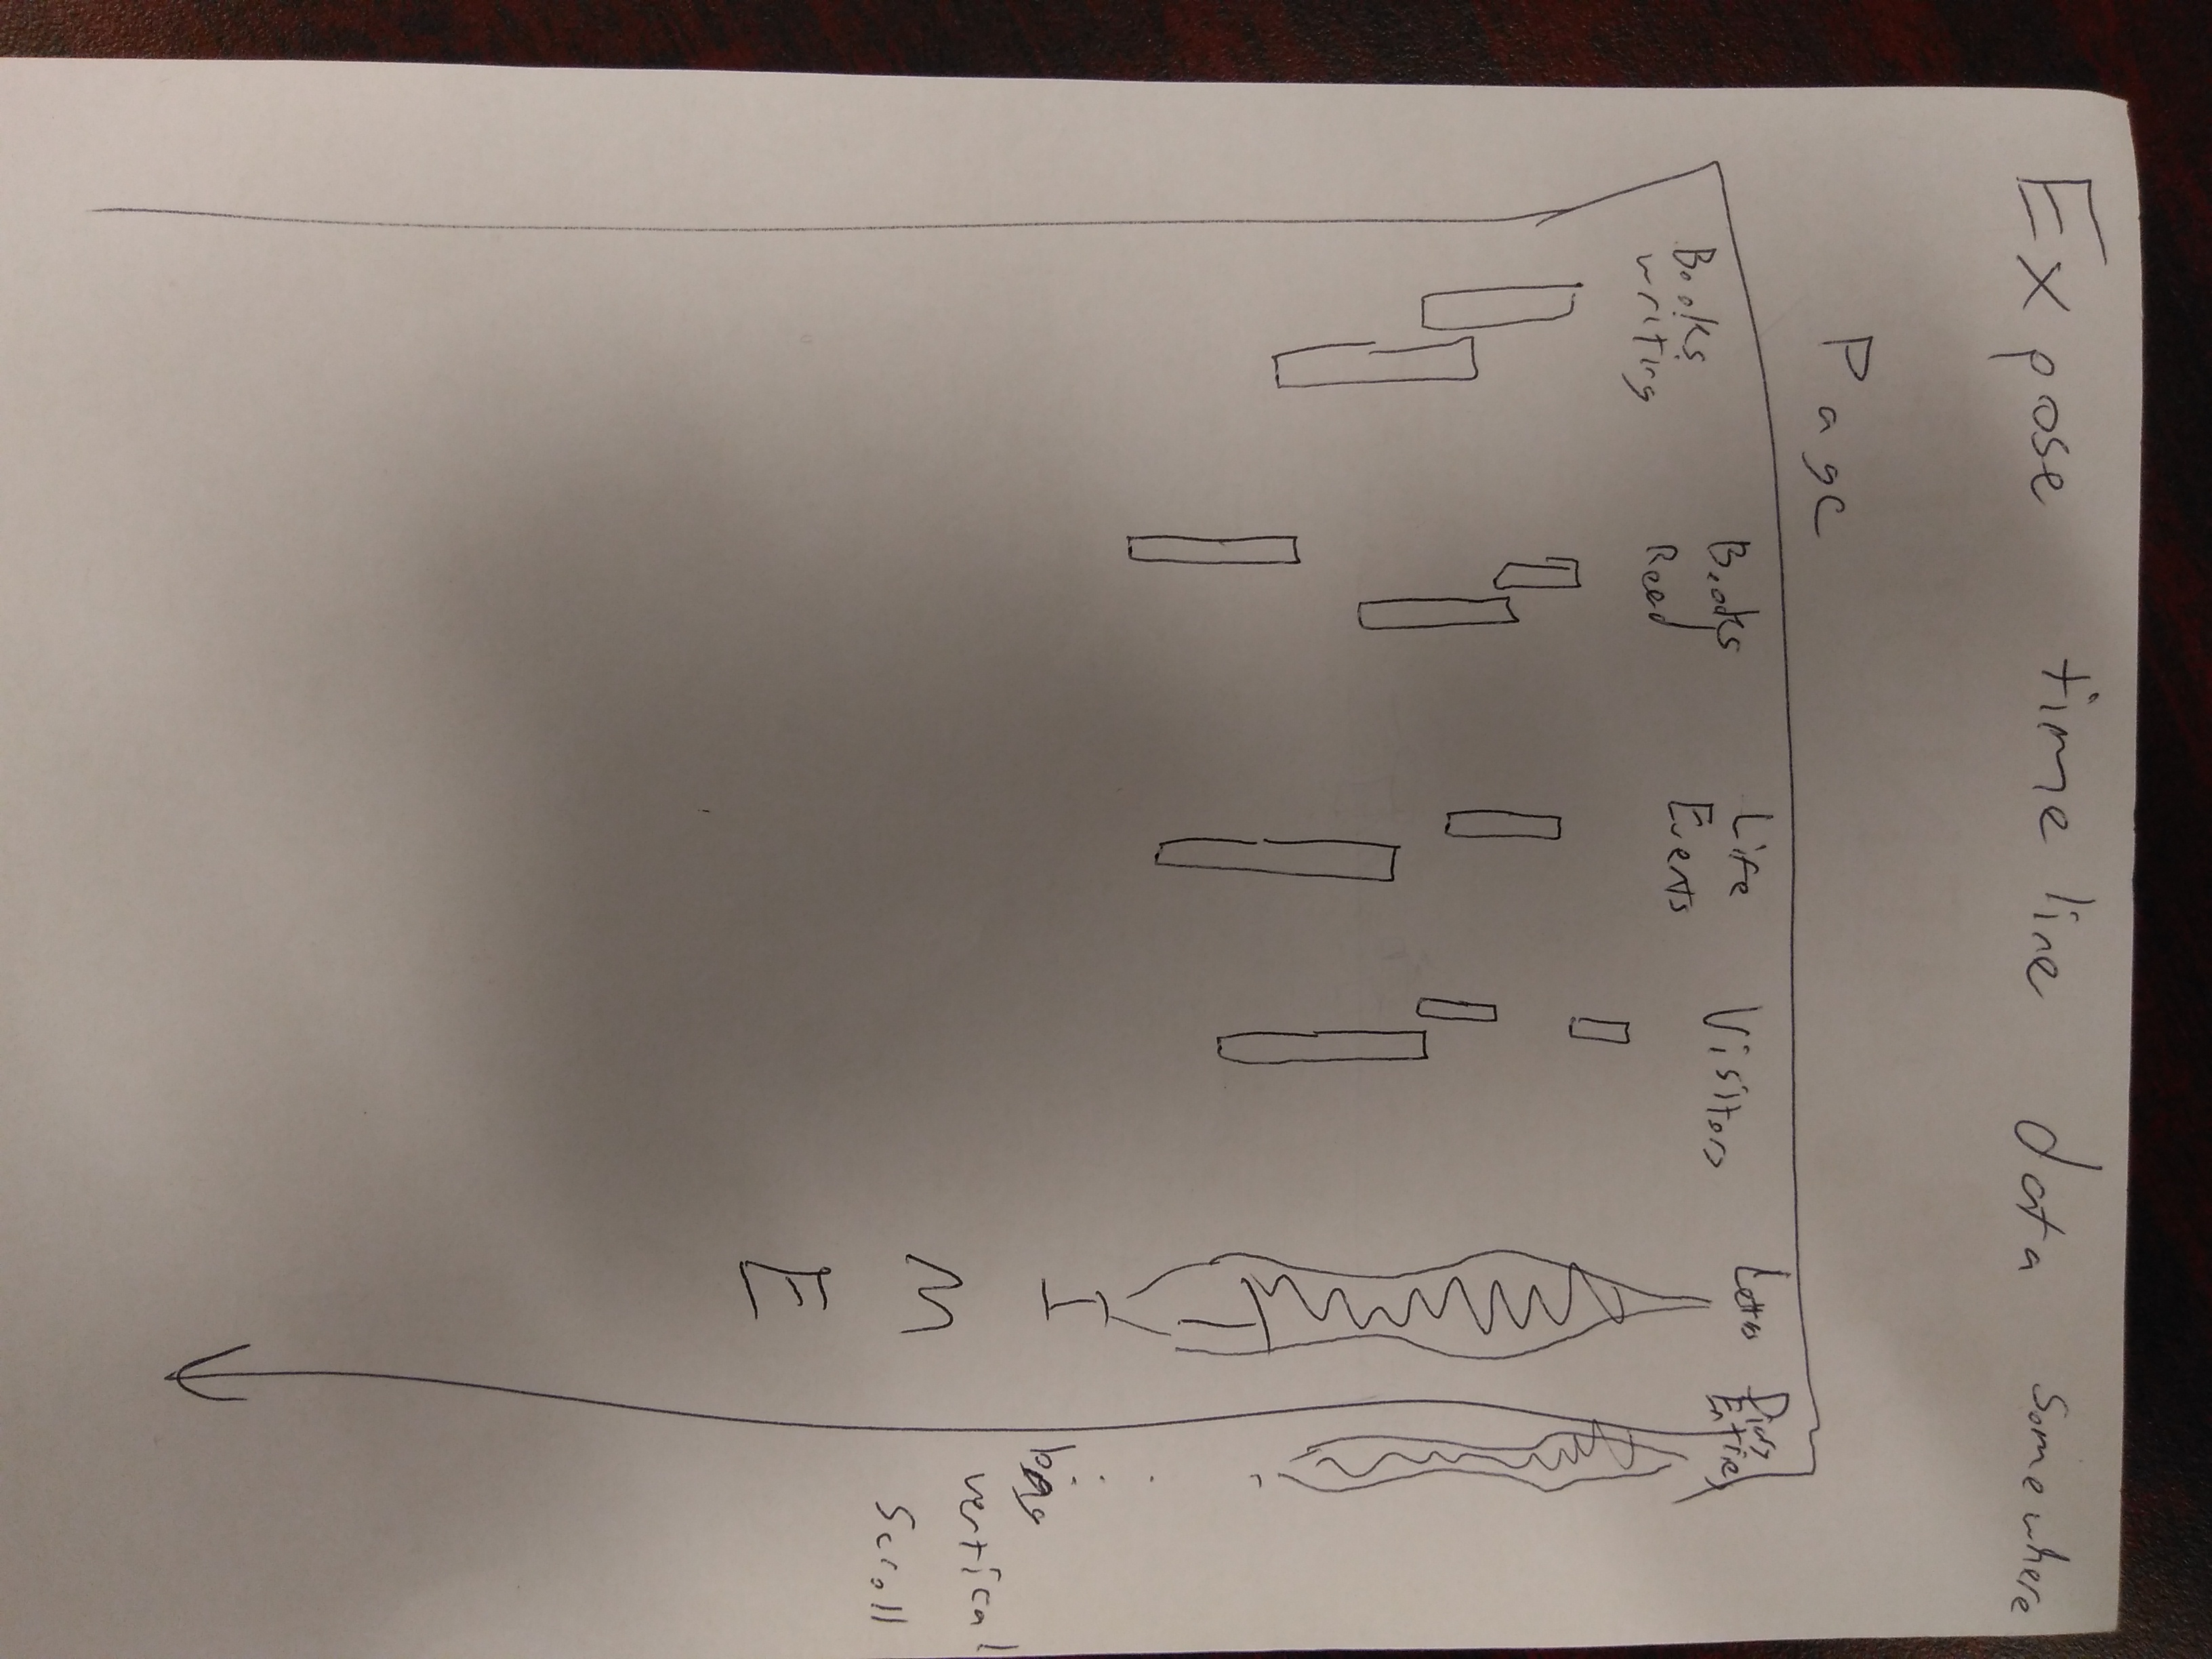 Expose time line data somewhere
Page
Books writing
Books Read
Life Events
Visitors
Diary Entries
T
I
M
E
vertical
Scroll